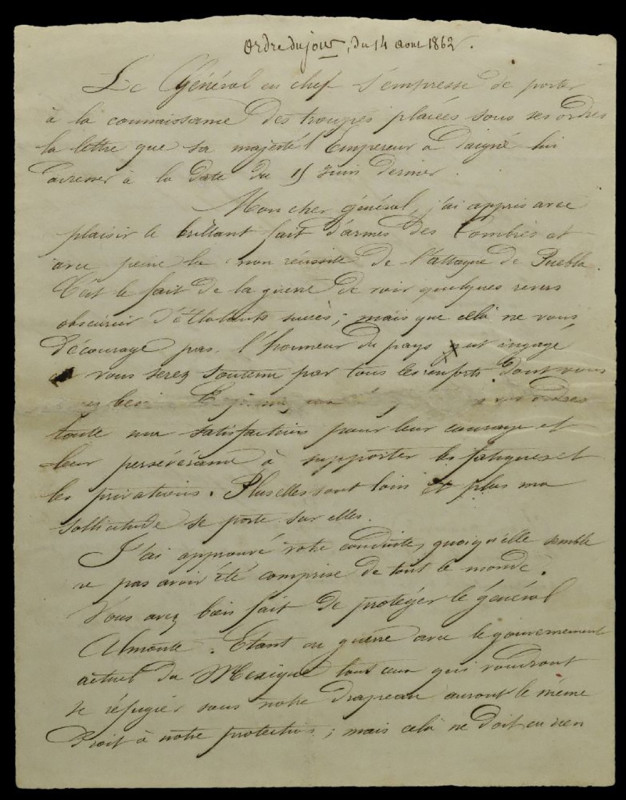 Ordre du jour, du 14 août 1862.
Le Général en chef s'empresse de porter
à la connaissance des troupes placées sous ses ordres
la lettre que sa majesté l'Empereur a daigné lui
adresser à la date du 15 Juin dernier.
Mon cher général, j'ai appris avec
plaisir le brillant fait d'armes des Combres et
avec peine la non réussite de l'attaque de Puebla.
C'est le fait de la guerre de voir quelques revers
obscurcir d'éclatants succès; mais que celà ne vous
décourage pas. l'honneur du pays est engagé
et vous serez soutenu par tous les renforts dont vous
toute ma satisfaction pour leur courage et
leur persévérance à supporter les fatigues et
les privations. Plus elles sont loin et plus ma
sollicitude se porte sur elles.
J'ai approuvé votre conduite, quoiqu'elle semble
ne pas avoir été comprise de tout le monde.
Vous avez bien fait de protéger le général
Almonte. Etant en guerre avec le gouvernement
actuel du Mexique tous ceux qui voudront
se réfugier sous notre drapeau auront le même
droit à notre protection; mais celà ne doit en rien